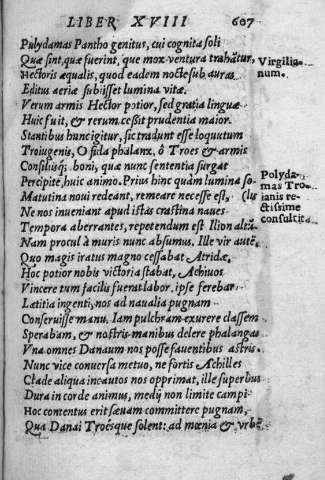 LIBER XVIII 607
Pulydamas Pantho genitus, cui cognita soli
Quæ sint, quæ fuerint, quæ mox ventura trahãtur,
Hectoris æqualis, quod eadem nocte sub auras
Editus aeriæ subijsset lumina vitæ.
Verum armis Hector potior, sed gratia linguæ
Huic fuit, & rerum cessit prudentia maior.
Stantibus hunc igitur, sic tradunt esse loquutum
Troiugenis, O fida phalanx, ô Troes & armis
Consilijsq; boni, quæ nunc sententia surgat
Percipite, huic animo. Prius hinc quàm lumina so-
Matutina noui redeant, remeare necesse est, (lis
Ne nos inueniant apud istas crastina naues
Tempora aberrantes, repetendum est Ilion altũ.
Nam procul à muris nunc absumus. Ille vir autẽ,
Quo magis iratus magno cessabat Atridæ,
Hoc potior nobis victoria stabat, Achiuos
Vincere tum facilis fuerat labor. ipse ferebar
Lætitia ingenti, nos ad naualia pugnam
Conseruisse manu. Iam pulchram exurere classem
Sperabam, & nostris manibus delere phalangas
Vna omnes Danaum nos posse fauentibus astris.
Nunc vice conuersa metuo, ne fortis Achilles
Clade aliqua incautos nos opprimat, ille superbus
Dura in corde animus, medij non limite campi
Hoc contentus erit sæuam committere pugnam,
Qua Danai Troésque solent: ad mœnia & vrbẽ
Virgilia-
num.
Polyda-
mas Tro
ianis re-
ctissime
consultat